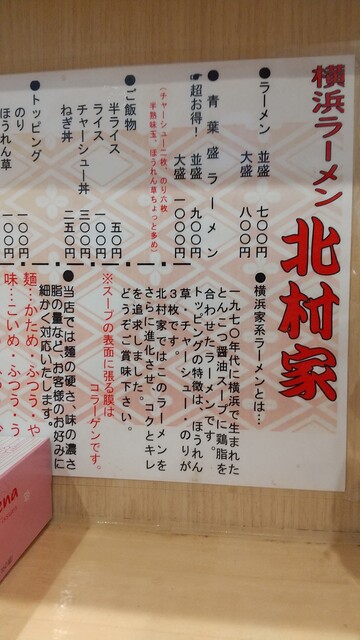 横浜ラーメン 北村家
●ラーメン 並盛 七〇〇円
大盛 八〇〇円
●青葉盛ラーメン
☛超お得! 並盛 九〇〇円
大盛 一〇〇〇円
(チャーシュー二枚、のり六枚
半熟味玉、ほうれん草ちょっと多め)
●ご飯物
半ライス 五〇円
ライス 一〇〇円
チャーシュー丼 三〇〇円
ねぎ丼 二五〇円
●トッピング
のり 一〇〇円
ほうれん草 一〇〇円
●横浜家系ラーメンとは…
一九七〇年代に横浜で生まれた
とんこつ醤油スープに鶏脂を
合わせたラーメンです。
トッピングの特徴は、ほうれん
草・チャーシュー・のりが
3枚です。
北村家ではこのラーメンを
さらに進化させ、コクとキレ
を追求しました。
どうぞご賞味下さい。
※スープの表面に張る膜は
コラーゲンです。
●当店では麺の硬さ、味の濃さ
脂の量など、お客様のお好みに
細かく対応いたします。
麺…かため・ふつう・や
味…こいめ・ふつう・う
ena